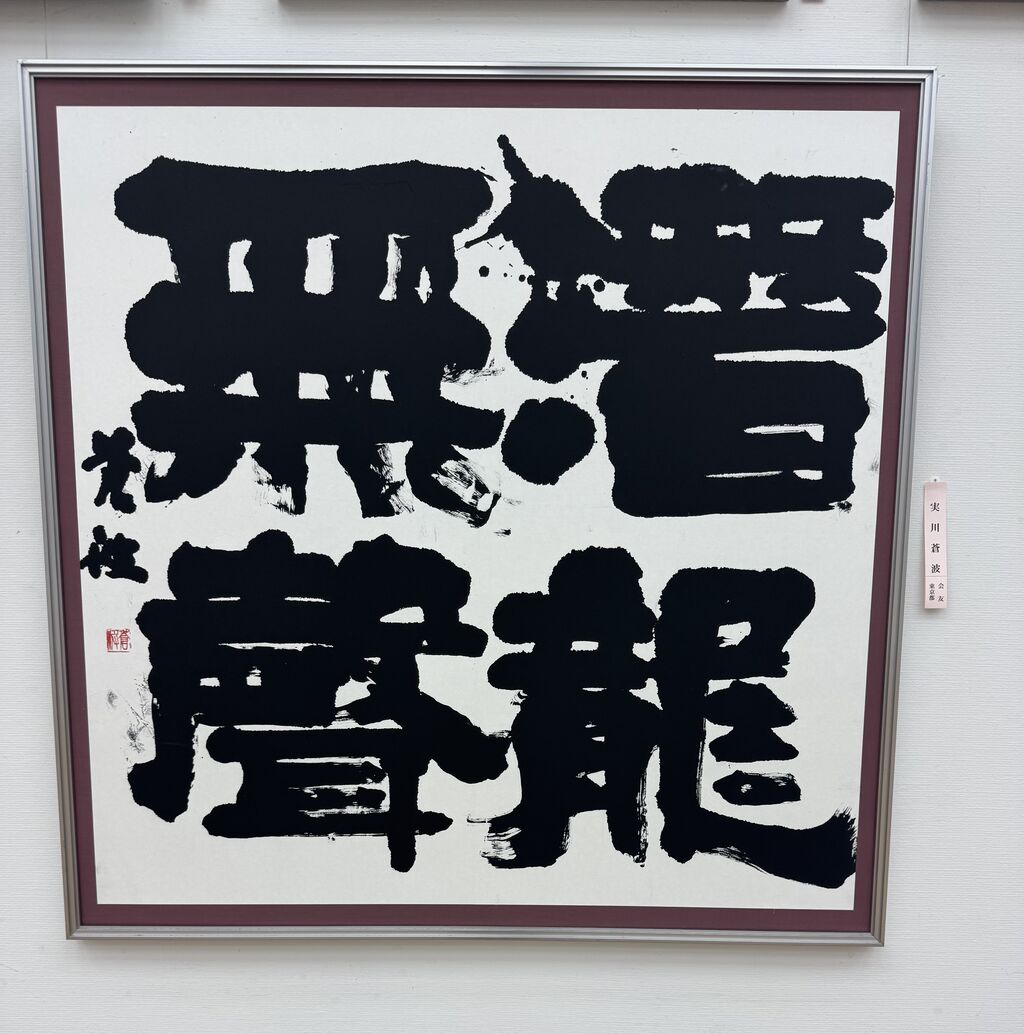 潛龍
無聲
蒼波
実川蒼波
会友
東京都